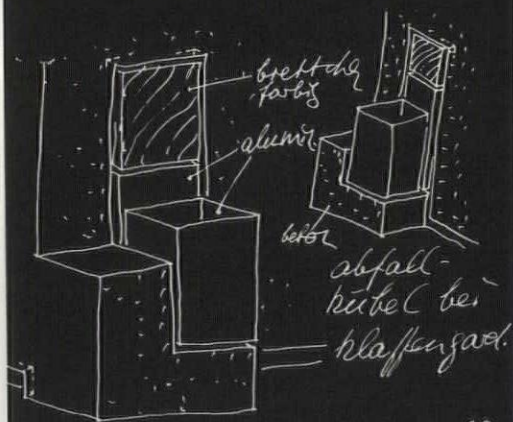 brettchen
farbig
alumin.
beton
abfall-
kübel bei
klassengard.